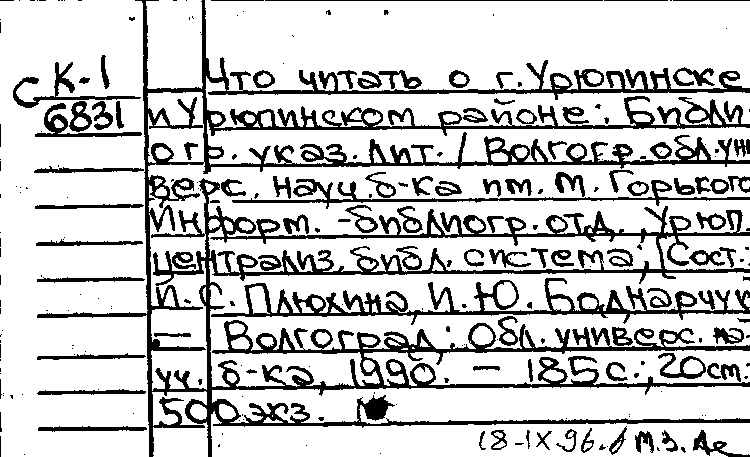 С К-1
6831
Что читать о г. Урюпинске
и Урюпинском районе: Библи
огр. указ. лит. / Волгогр. обл. уни
верс. науч. б-ка им. М. Горького
Информ. -библиогр. отд., Урюп.
централиз. библ. система; [Сост.:
И. С. Плюхина, И. Ю. Боднарчук
— Волгоград: Обл. универс. на-
уч. б-ка, 1990. — 185 с.; 20 ст.
500 экз.
18-IX-96. М.З.